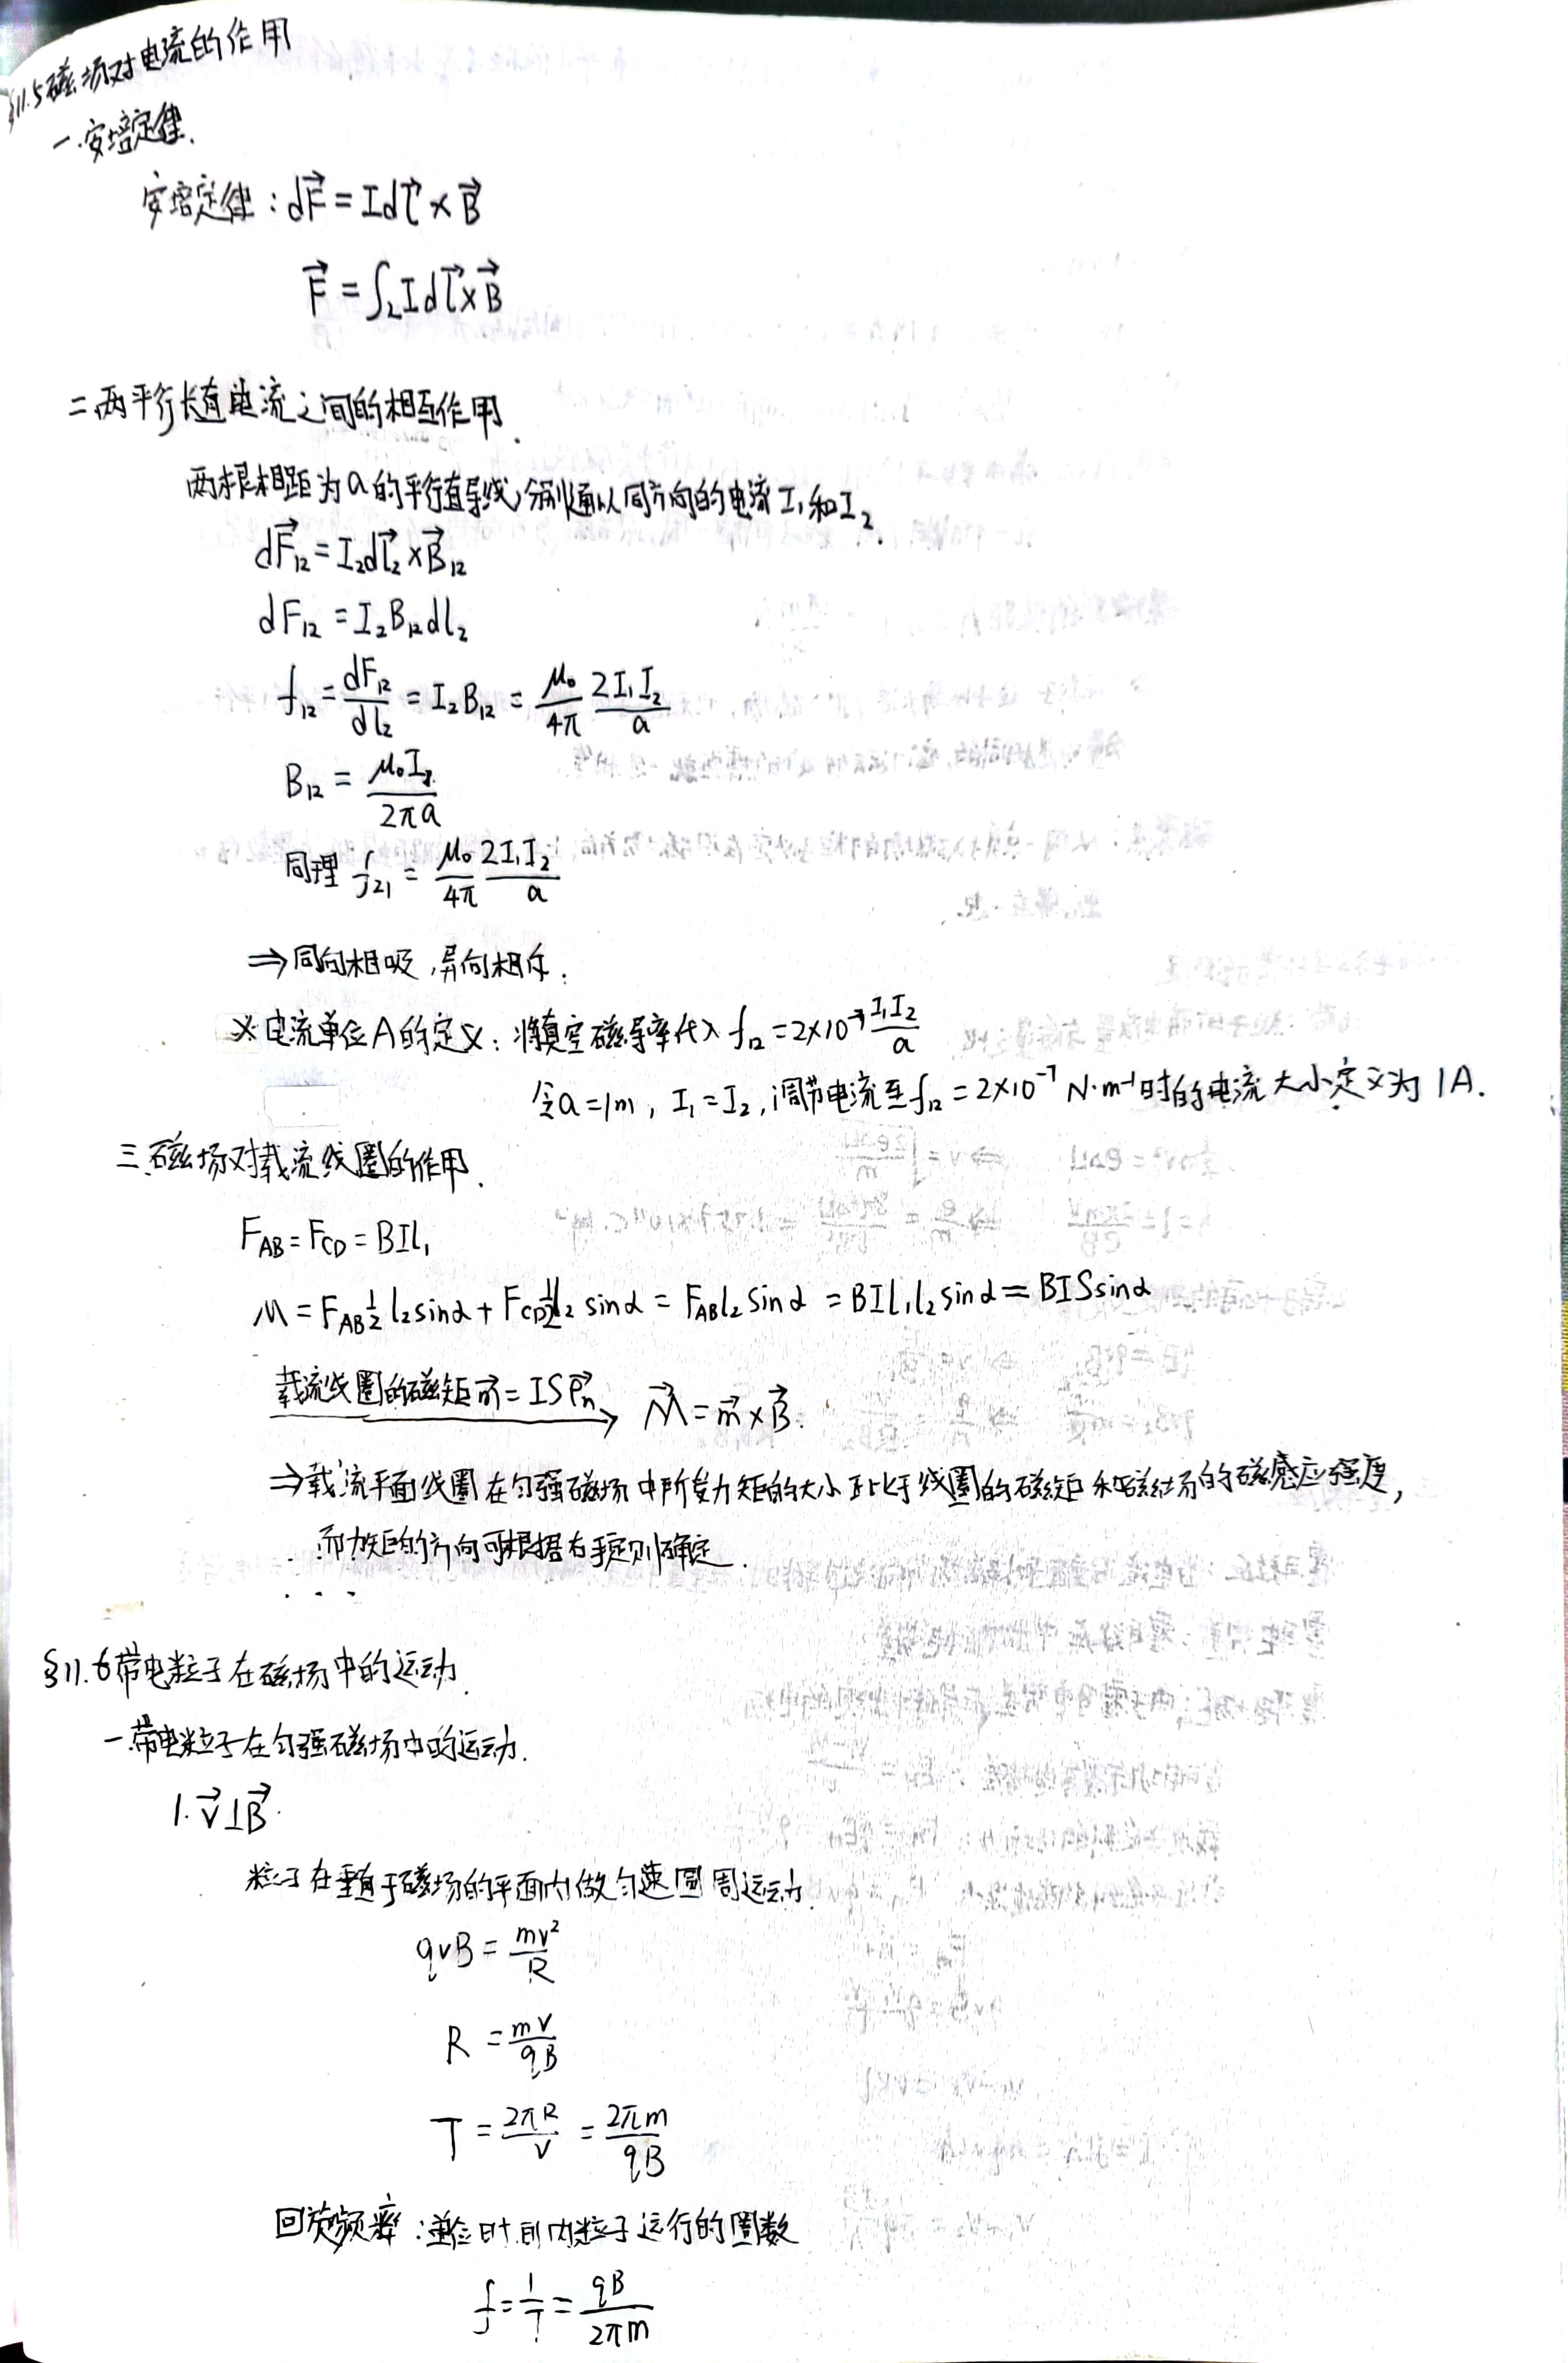 §11.5磁场对电流的作用
一.安培定律.
安培定律：dF⃗ = Idl⃗ × B⃗
F⃗ = ∫_L Idl⃗ × B⃗
二.两平行长直电流之间的相互作用.
两根相距为a的平行直导线,分别通以同方向的电流I₁和I₂.
dF⃗₁₂ = I₂dl⃗₂ × B⃗₁₂
dF₁₂ = I₂B₁₂dl₂
f₁₂ = dF₁₂/dl₂ = I₂B₁₂ = μ₀/4π 2I₁I₂/a
B₁₂ = μ₀I₁/2πa
同理 f₂₁ = μ₀/4π 2I₁I₂/a
⇒同向相吸,异向相斥.
※电流单位A的定义：将真空磁导率代入 f₁₂ = 2×10⁻⁷ I₁I₂/a
令a=1m, I₁=I₂,调节电流至f₁₂ = 2×10⁻⁷ N·m⁻¹时的电流大小定义为1A.
三.磁场对载流线圈的作用.
F_AB = F_CD = BIl₁
M = F_AB ½ l₂sinα + F_CD ½ l₂ sinα = F_AB l₂ sinα = BIl₁l₂ sinα = BISsinα
载流线圈的磁矩m⃗ = ISe⃗ₙ → M⃗ = m⃗ × B⃗.
⇒载流平面线圈在匀强磁场中所受力矩的大小正比于线圈的磁矩和磁场的磁感应强度,
而力矩的方向可根据右手定则确定.
§11.6带电粒子在磁场中的运动.
一.带电粒子在匀强磁场中的运动.
1. v⃗⊥B⃗.
粒子在垂直于磁场的平面内做匀速圆周运动.
qvB = mv²/R
R = mv/qB
T = 2πR/v = 2πm/qB
回旋频率：单位时间内粒子运行的圈数
f = 1/T = qB/2πm